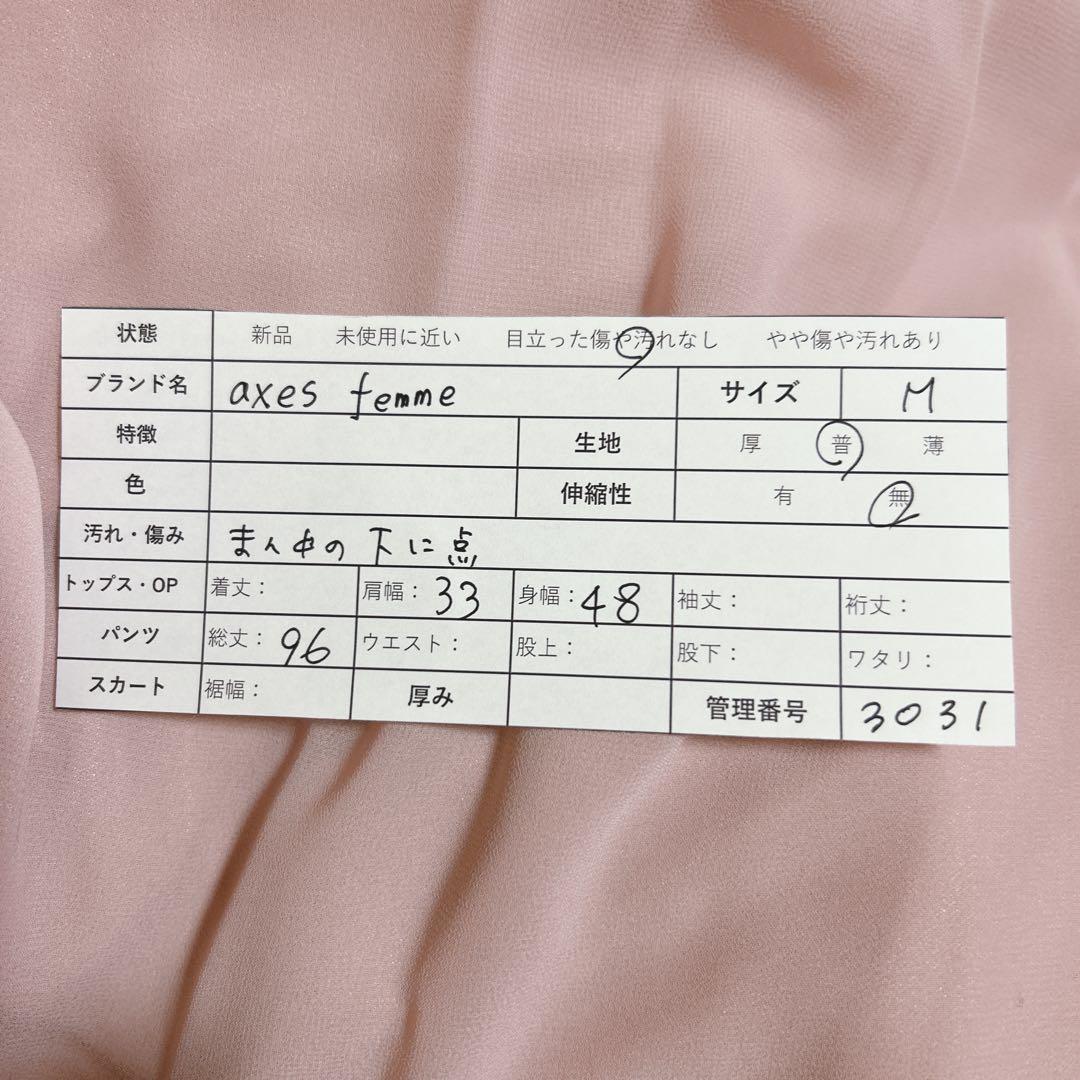 状態 新品 未使用に近い 目立った傷や汚れなし やや傷や汚れあり
ブランド名 axes femme サイズ M
特徴 生地 厚 普 薄
色 伸縮性 有 無
汚れ・傷み まん中の下に点
トップス・OP 着丈： 肩幅：33 身幅：48 袖丈： 裄丈：
パンツ 総丈：96 ウエスト： 股上： 股下： ワタリ：
スカート 裾幅： 厚み 管理番号 3031